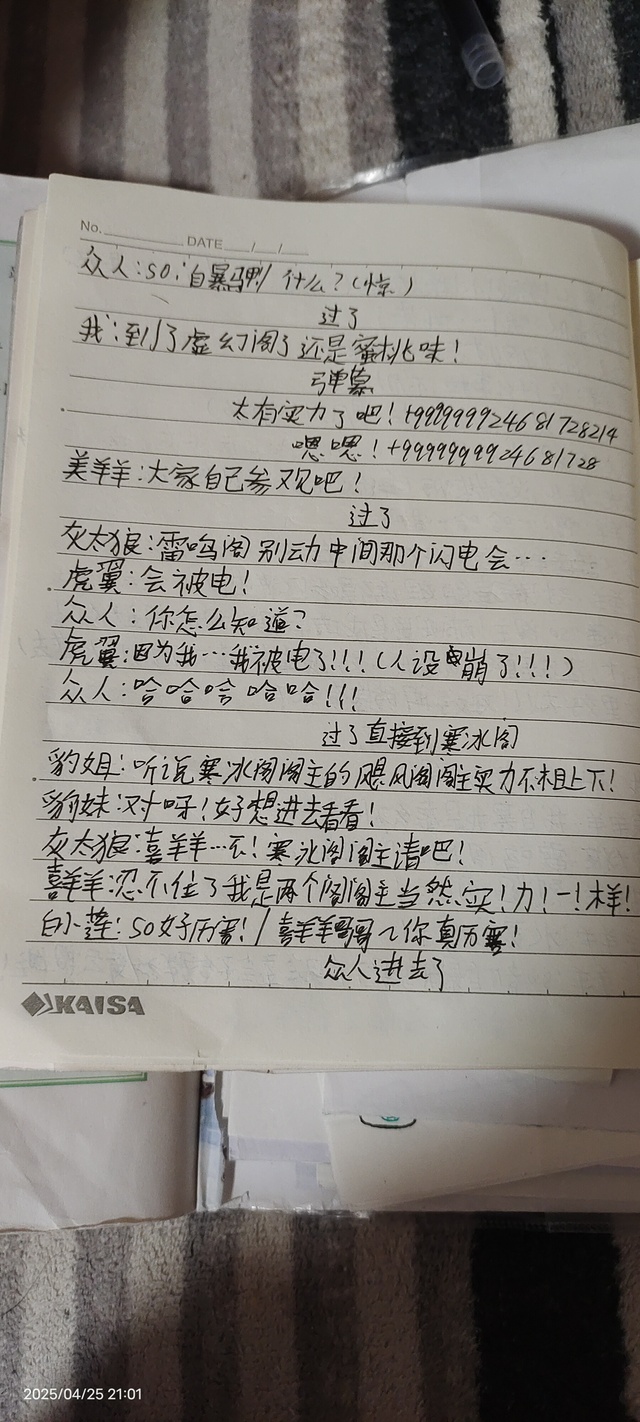 No. DATE / /
众人:so:自暴 什么?(惊)
过了
我:到了虚幻阁了还是蜜桃味!
弹幕
太有实力了吧!+999999924681728214
嗯嗯!+9999999924681728
美羊羊:大家自己参观吧!
过了
灰太狼:雷鸣阁别动中间那个闪电会…
虎翼:会被电!
众人:你怎么知道?
虎翼:因为我…我被电了!!!(人设崩了!!!)
众人:哈哈哈哈哈!!!
过了直接到寒冰阁
豹姐:听说寒冰阁阁主的飓风阁阁主实力不相上下!
豹妹:对呀!好想进去看看!
灰太狼:喜羊羊…不!寒冰阁阁主请吧!
喜羊羊:忍不住了我是两个阁阁主当然实!力!一!样!
白小莲:so好厉害!/喜羊羊哥哥~你真厉害!
众人进去了
KAISA
2025/04/25 21:01